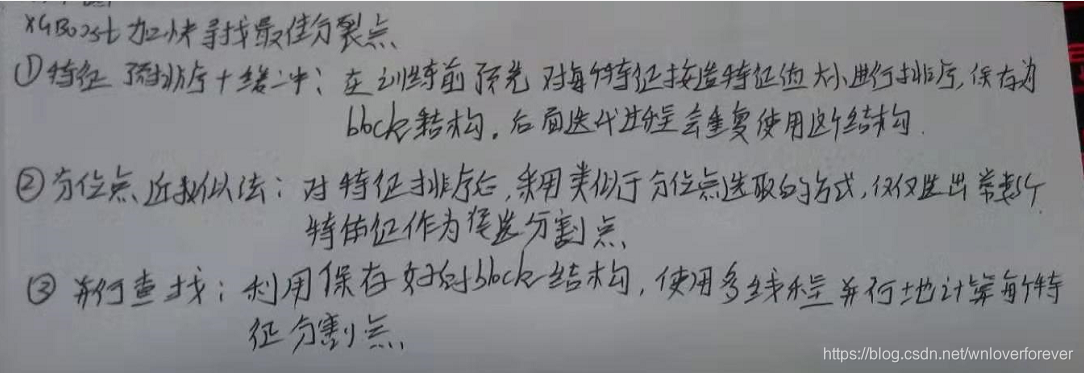 XGBoost加快寻找最佳分裂点
①特征预排序+缓冲:在训练前预先对每个特征按照特征值大小进行排序,保存为
block结构。后面迭代过程会重复使用这个结构.
②分位点近似法:对特征排序后,采用类似于分位点选取的方式,仅仅选出常数个
特征值作为候选分割点、
③并行查找:利用保存好的block结构,使用多线程并行地计算每个特
征分割点、
https://blog.csdn.net/wnloverforever